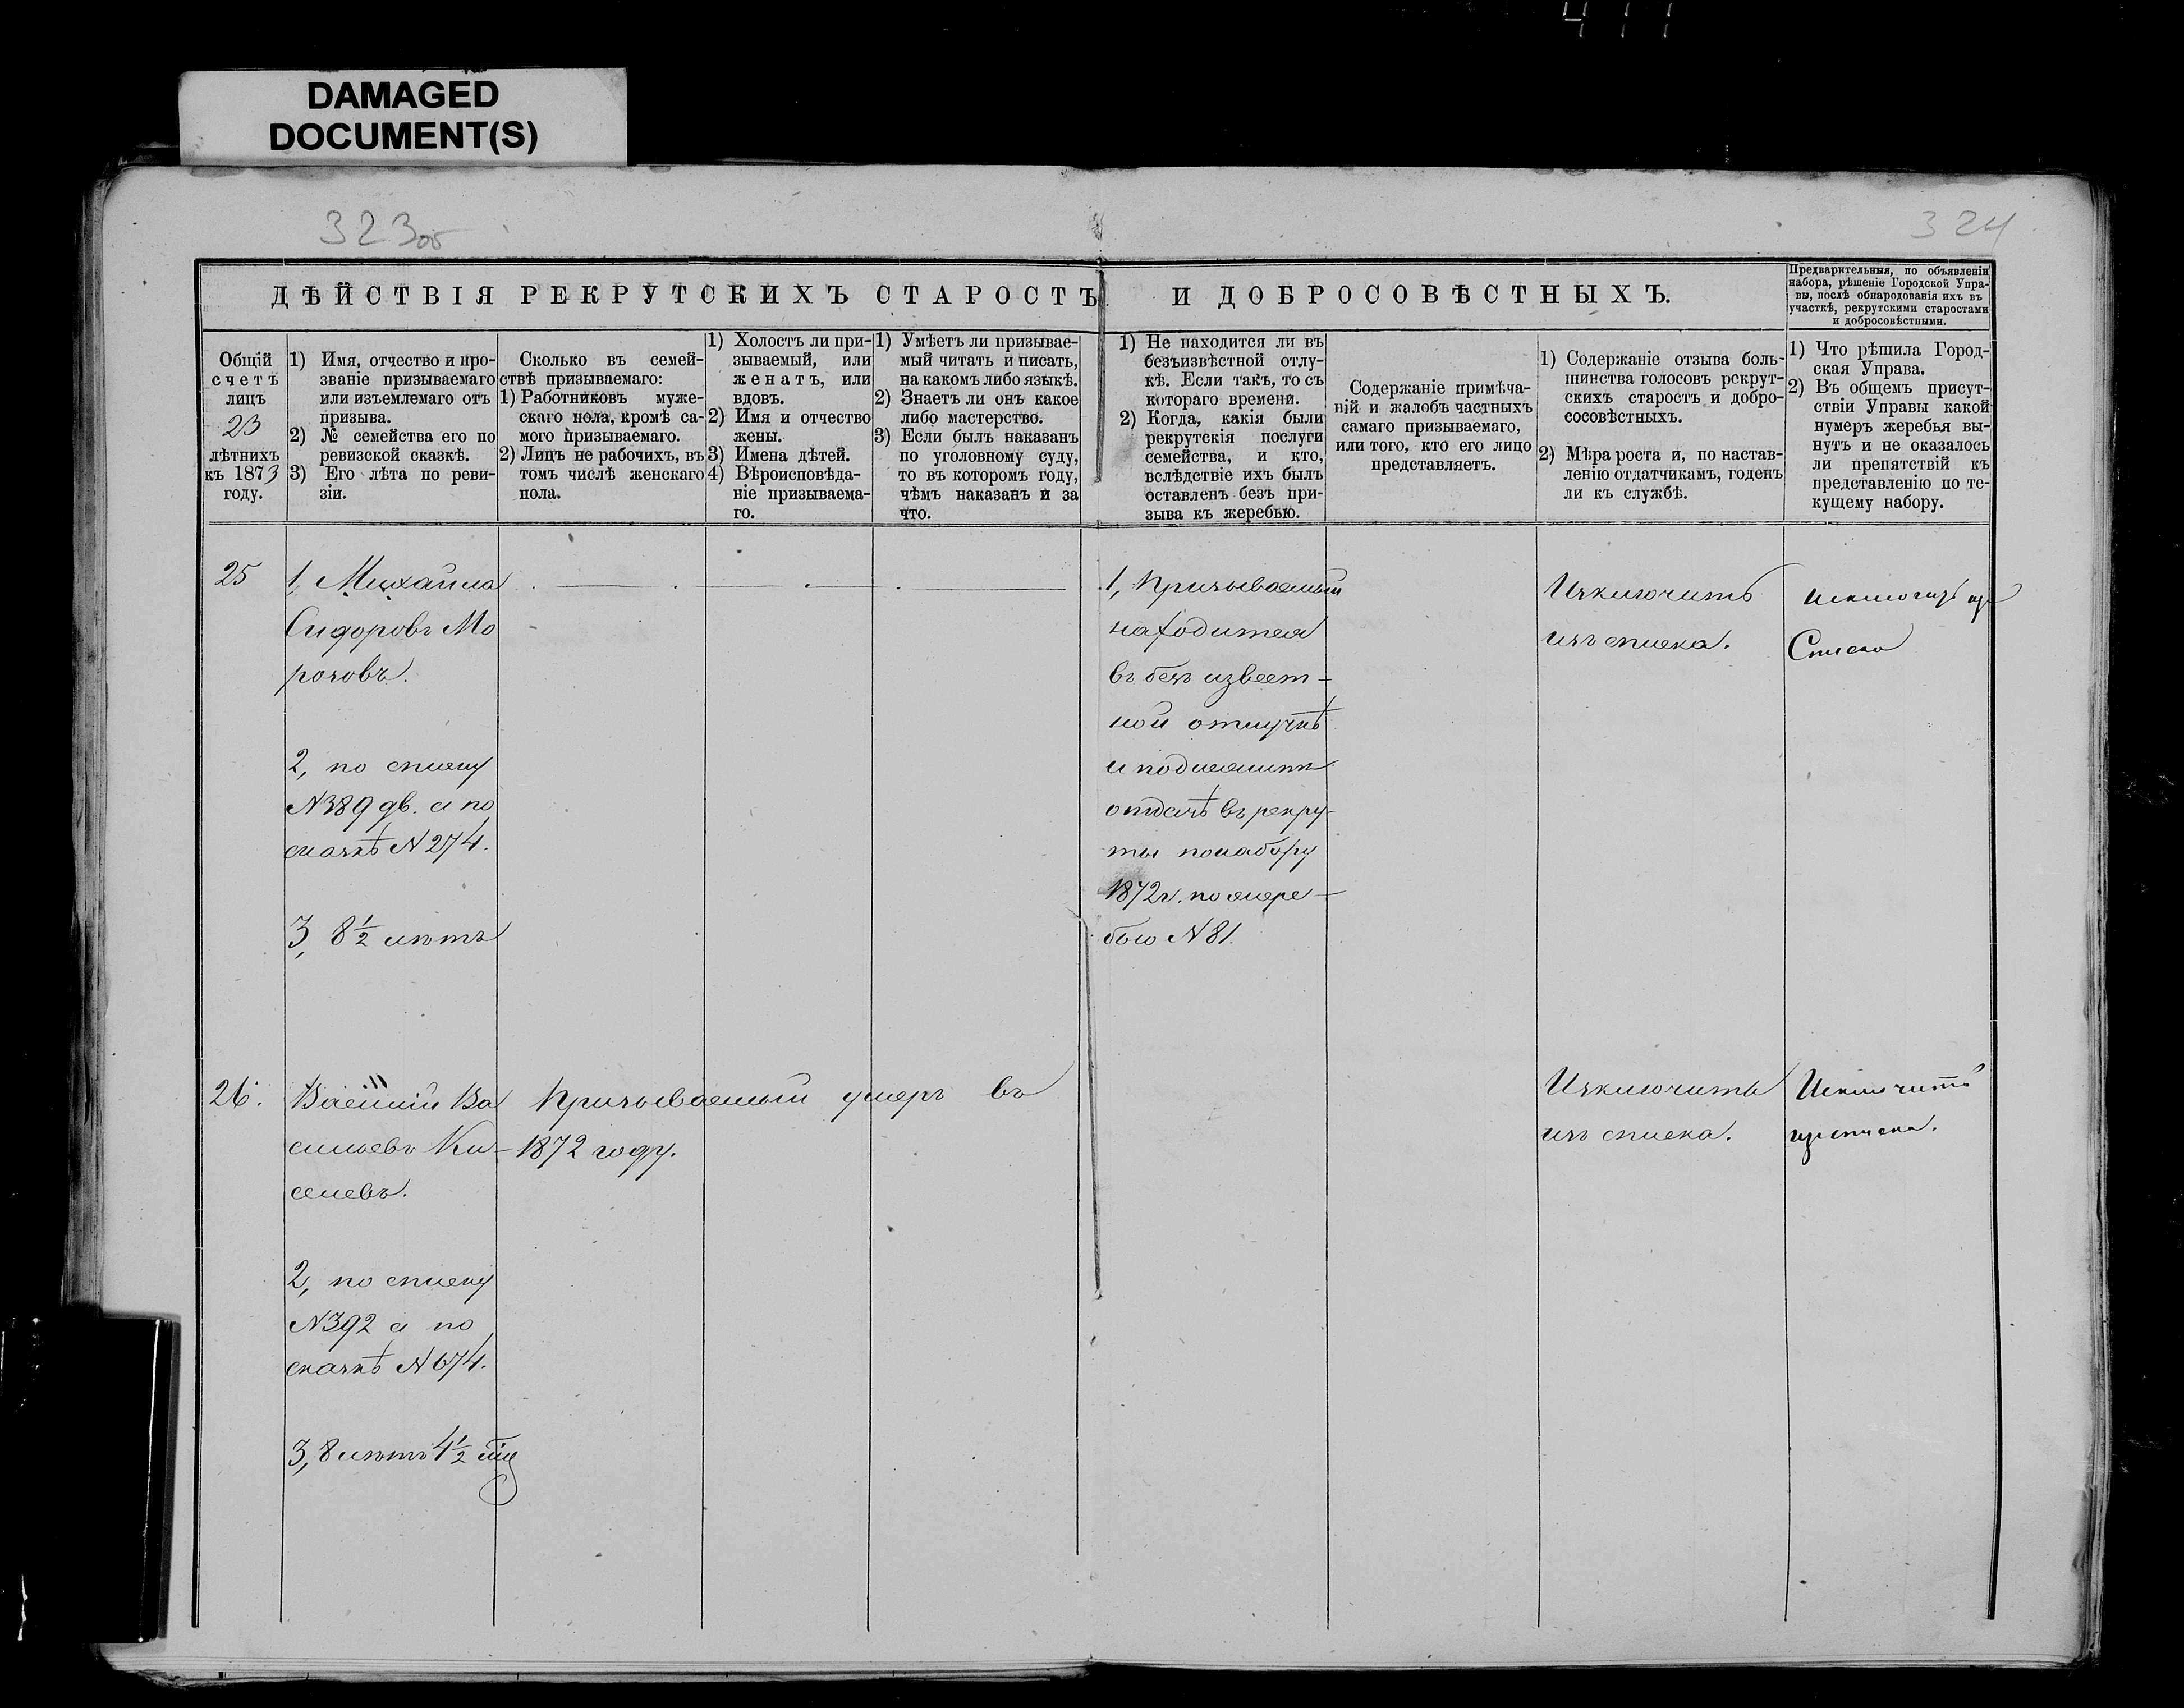 411
DAMAGED
DOCUMENT(S)
323об
324
ДѢЙСТВІЯ РЕКРУТСКИХЪ СТАРОСТЪ И ДОБРОСОВѢСТНЫХЪ.
Предварительныя, по объявленіи
набора, рѣшеніе Городской Упра-
вы, послѣ обнародованія ихъ въ
участкѣ, рекрутскими старостами
и добросовѣстными.
Общій
счетъ
лицъ
23
лѣтнихъ
къ 1873
году.
1) Имя, отчество и про-
званіе призываемаго
или изъемлемаго отъ
призыва.
2) № семейства его по
ревизской сказкѣ.
3) Его лѣта по реви-
зіи.
Сколько въ семей-
ствѣ призываемаго:
1) Работниковъ муже-
скаго пола, кромѣ са-
мого призываемаго.
2) Лицъ не рабочихъ, въ
томъ числѣ женскаго
пола.
1) Холостъ ли при-
зываемый, или
женатъ, или
вдовъ.
2) Имя и отчество
жены.
3) Имена дѣтей.
4) Вѣроисповѣда-
ніе призываема-
го.
1) Умѣетъ ли призывае-
мый читать и писать,
на какомъ либо языкѣ.
2) Знаетъ ли онъ какое
либо мастерство.
3) Если былъ наказанъ
по уголовному суду,
то въ которомъ году,
чѣмъ наказанъ и за
что.
1) Не находится ли въ
безъизвѣстной отлу-
кѣ. Если такъ, то съ
котораго времени.
2) Когда, какія были
рекрутскія послуги
семейства, и кто,
вслѣдствіе ихъ былъ
оставленъ безъ при-
зыва къ жеребью.
Содержаніе примѣча-
ній и жалобъ частныхъ
самаго призываемаго,
или того, кто его лицо
представляетъ.
1) Содержаніе отзыва боль-
шинства голосовъ рекрут-
скихъ старостъ и добро-
совѣстныхъ.
2) Мѣра роста и, по настав-
ленію отдатчикамъ, годенъ
ли къ службѣ.
1) Что рѣшила Город-
ская Управа.
2) Въ общемъ присут-
ствіи Управы какой
нумеръ жеребья вы-
нутъ и не оказалось
ли препятствій къ
представленію по те-
кущему набору.
25
1, Михайла
Сидоровъ Мо
розовъ.
2, по списку
№389 дв. а по
сказкѣ №274.
3, 8½ лѣтъ
1, Призываемый
находится
въ безъ извест-
ной отлучкѣ
и подлежитъ
отдачѣ въ рекру-
ты по набору
1872г. по жере-
бью №81.
Изключить
изъ списка.
исключить изъ
Списка
26.
Василій Ва
сильевъ Ки-
селевъ.
2, по списку
№392 а по
сказкѣ №674.
3, 8 лѣтъ 4½ мѣц
Призываемый умеръ въ
1872 году.
Изключить
изъ списка.
Исключить
изъ списка.